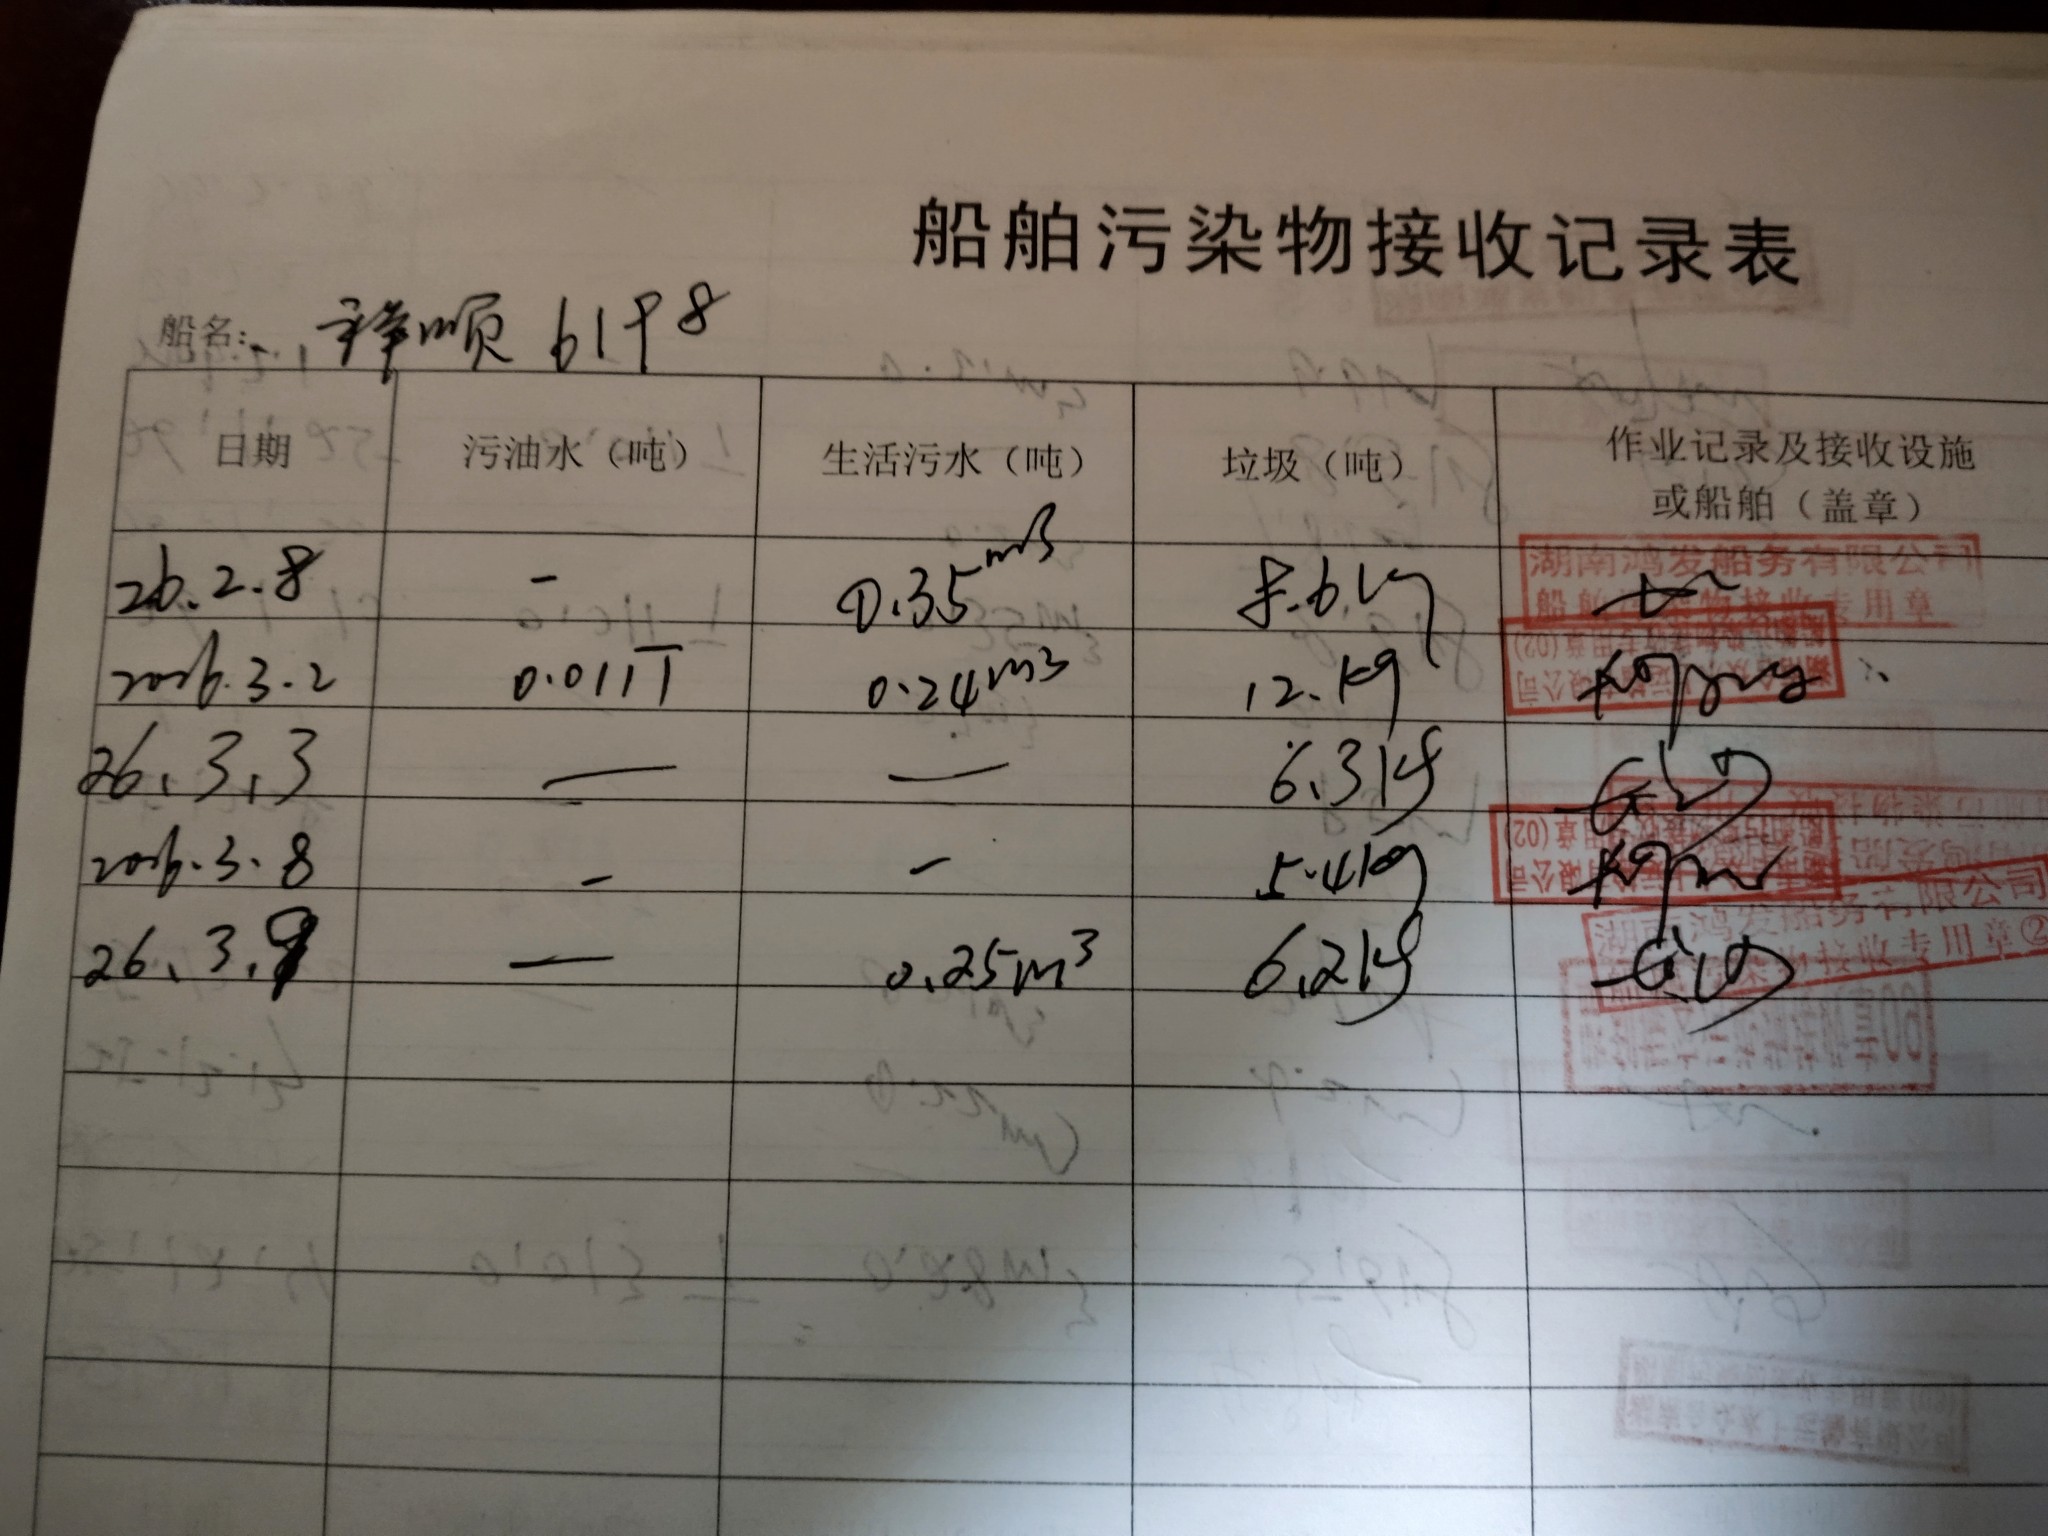 船舶污染物接收记录表
船名: 祥顺 6198
日期 污油水（吨） 生活污水（吨） 垃圾（吨） 作业记录及接收设施
或船舶（盖章）
26.2.8 - 0.35m3 8.6kg
湖南鸿发船务有限公司
船舶污染物接收专用章
2026.3.2 0.011T 0.24m3 12.kg
26.3.3 — — 6.3kg
2026.3.8 - - 5.4kg
26.3.9 — 0.25m3 6.2kg
湖南鸿发船务有限公司
船舶污染物接收专用章②